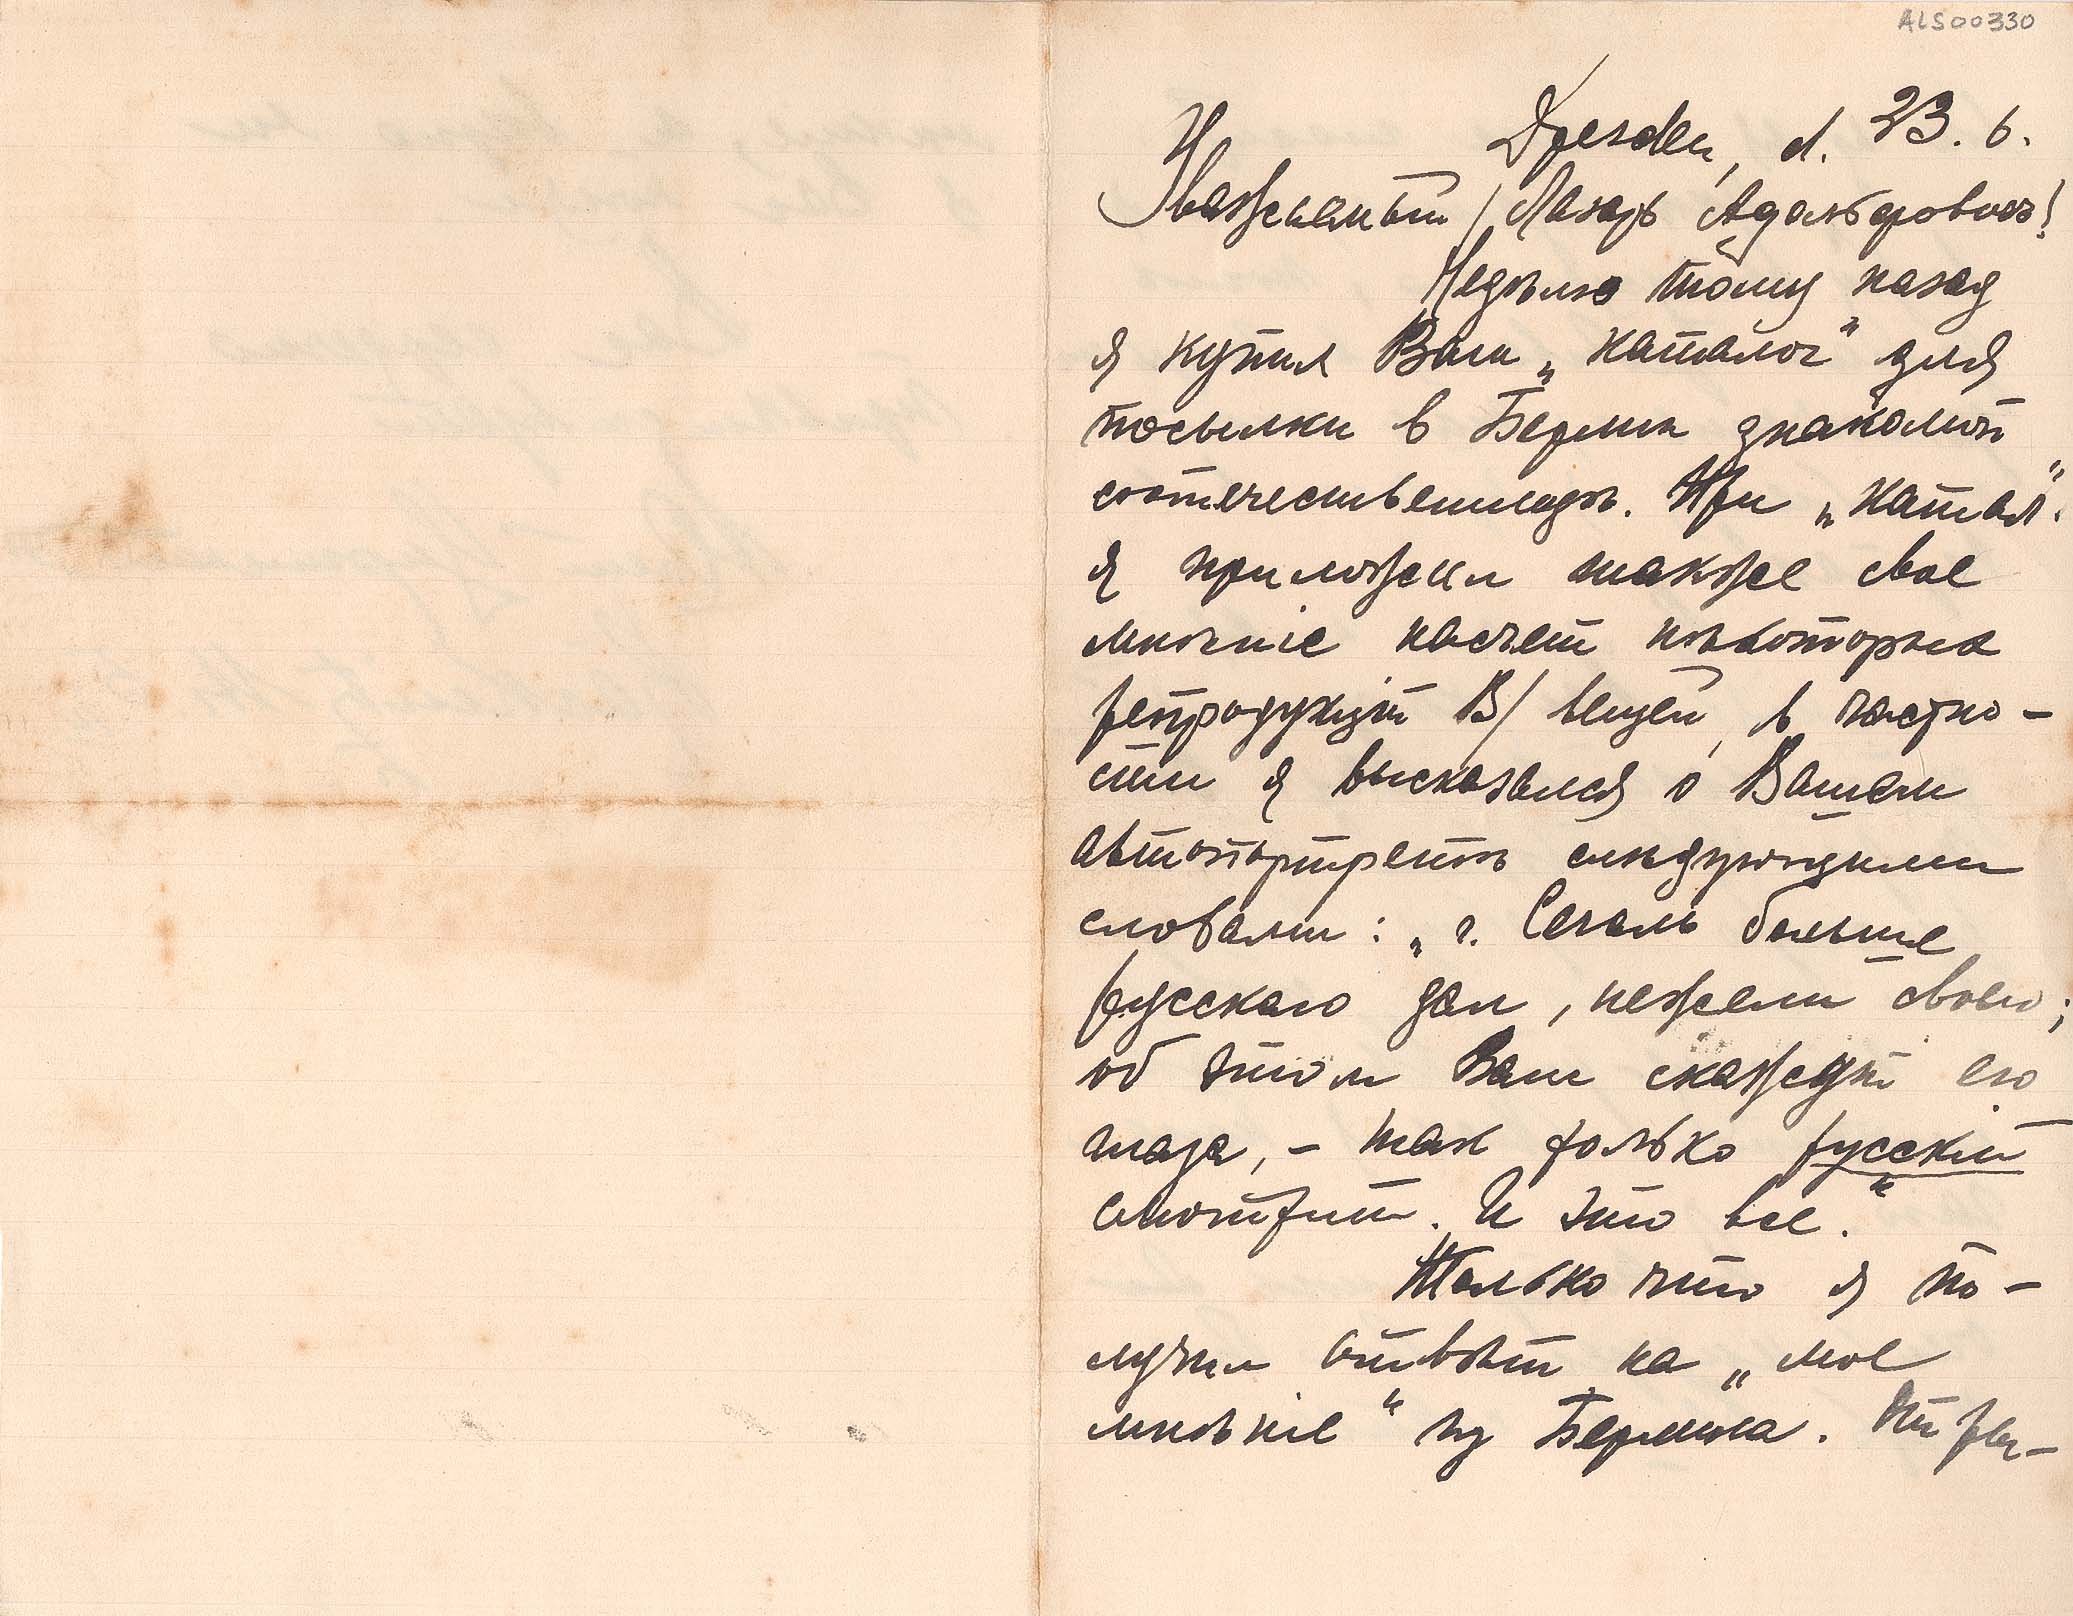 ALS00330
Dresden, d. 23. 6.
Уважаемый / Лазарь Адольфович!
Недѣлю тому назад
я купил Ваш „каталог“ для
посылки в Берлин знакомой
соотечественницѣ. При „катал“.
я приложил также свое
мнѣніе насчет нѣкоторых
репродукцій В/ вещей, в частно-
сти я высказался о Вашем
автопортретѣ слѣдующими
словами: „г. Сегаль больше
русскаго дал, нежели своего;
об этом Вам скажут его
глаза, – так только русскій
смотрит. И это все.“
Только что я по-
лучил отвѣт на „мое
мнѣніе“ из Берлина.